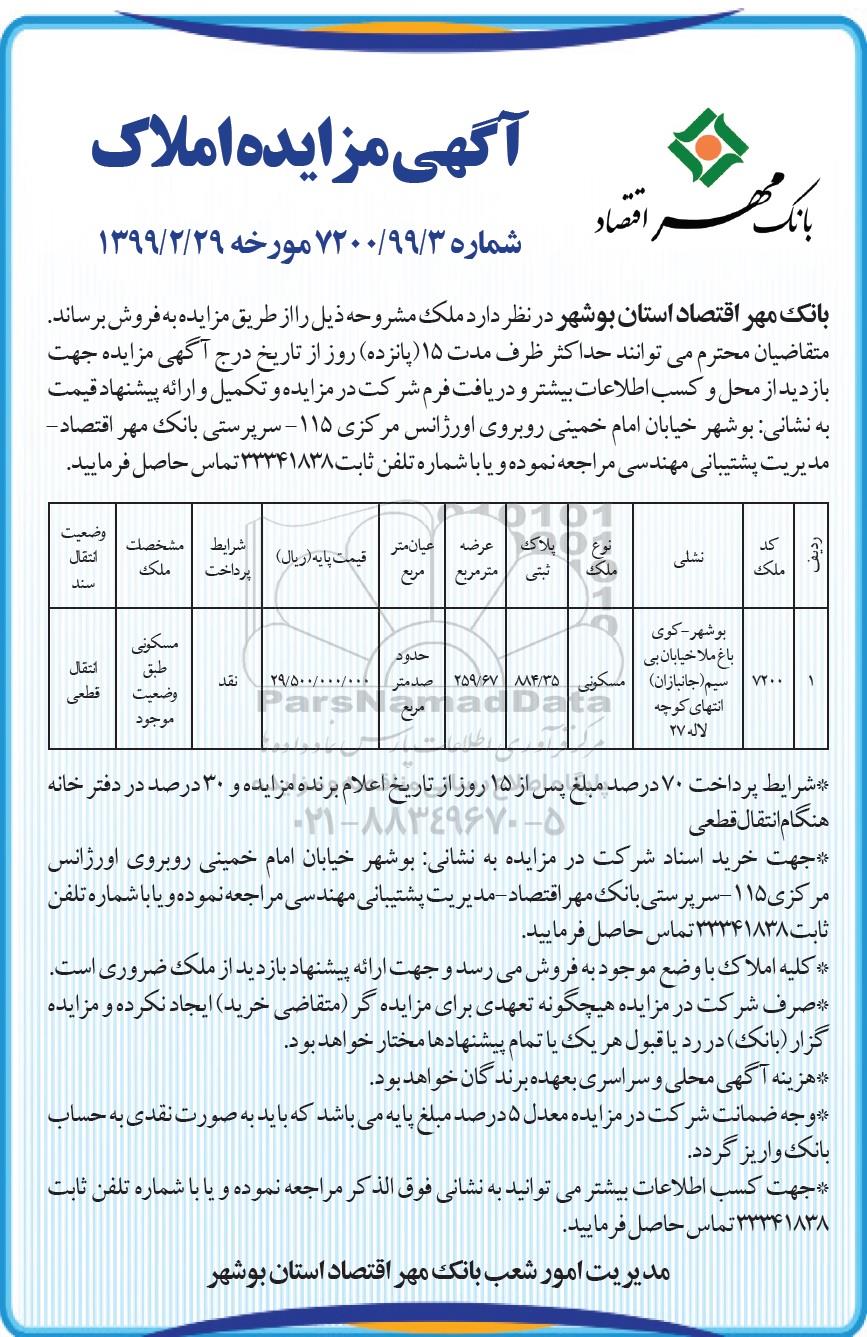 بانک مهر اقتصاد
آگهی مزایده املاک
شماره ۷۲۰۰/۹۹/۳ مورخه ۱۳۹۹/۲/۲۹
بانک مهر اقتصاد استان بوشهر در نظر دارد ملک مشروحه ذیل را از طریق مزایده به فروش برساند.
متقاضیان محترم می توانند حداکثر ظرف مدت ۱۵(پانزده) روز از تاریخ درج آگهی مزایده جهت
بازدید از محل و کسب اطلاعات بیشتر و دریافت فرم شرکت در مزایده و تکمیل و ارائه پیشنهاد قیمت
به نشانی: بوشهر خیابان امام خمینی روبروی اورژانس مرکزی ۱۱۵- سرپرستی بانک مهر اقتصاد-
مدیریت پشتیبانی مهندسی مراجعه نموده و یا با شماره تلفن ثابت ۳۳۳۴۱۸۳۸ تماس حاصل فرمایید.
ردیف کد ملک نشانی نوع ملک پلاک ثبتی عرضه مترمربع عیان متر مربع قیمت پایه (ریال) شرایط پرداخت مشخصات ملک وضعیت انتقال سند
۱ ۷۲۰۰ بوشهر-کوی باغ ملا خیابان بی سیم (جانبازان) انتهای کوچه لاله ۲۷ مسکونی ۸۸۴/۳۵ ۲۵۹/۶۷ حدود صدمتر مربع ۲۹/۵۰۰/۰۰۰/۰۰۰ نقد مسکونی طبق وضعیت موجود انتقال قطعی
ParsNamadData
مرکز فرآوری اطلاعات پارس نماد داده ها
۰۲۱-۸۸۳۴۹۶۷۰-۵
*شرایط پرداخت ۷۰ درصد مبلغ پس از ۱۵ روز از تاریخ اعلام برنده مزایده و ۳۰ درصد در دفتر خانه
هنگام انتقال قطعی
*جهت خرید اسناد شرکت در مزایده به نشانی: بوشهر خیابان امام خمینی روبروی اورژانس
مرکزی ۱۱۵-سرپرستی بانک مهر اقتصاد-مدیریت پشتیبانی مهندسی مراجعه نموده و یا با شماره تلفن
ثابت ۳۳۳۴۱۸۳۸ تماس حاصل فرمایید.
*کلیه املاک با وضع موجود به فروش می رسد و جهت ارائه پیشنهاد بازدید از ملک ضروری است.
*صرف شرکت در مزایده هیچگونه تعهدی برای مزایده گر (متقاضی خرید) ایجاد نکرده و مزایده
گزار (بانک) در رد یا قبول هر یک یا تمام پیشنهادها مختار خواهد بود.
*هزینه آگهی محلی و سراسری بعهده برندگان خواهد بود.
*وجه ضمانت شرکت در مزایده معدل ۵ درصد مبلغ پایه می باشد که باید به صورت نقدی به حساب
بانک واریز گردد.
*جهت کسب اطلاعات بیشتر می توانید به نشانی فوق الذکر مراجعه نموده و یا با شماره تلفن ثابت
۳۳۳۴۱۸۳۸ تماس حاصل فرمایید.
مدیریت امور شعب بانک مهر اقتصاد استان بوشهر